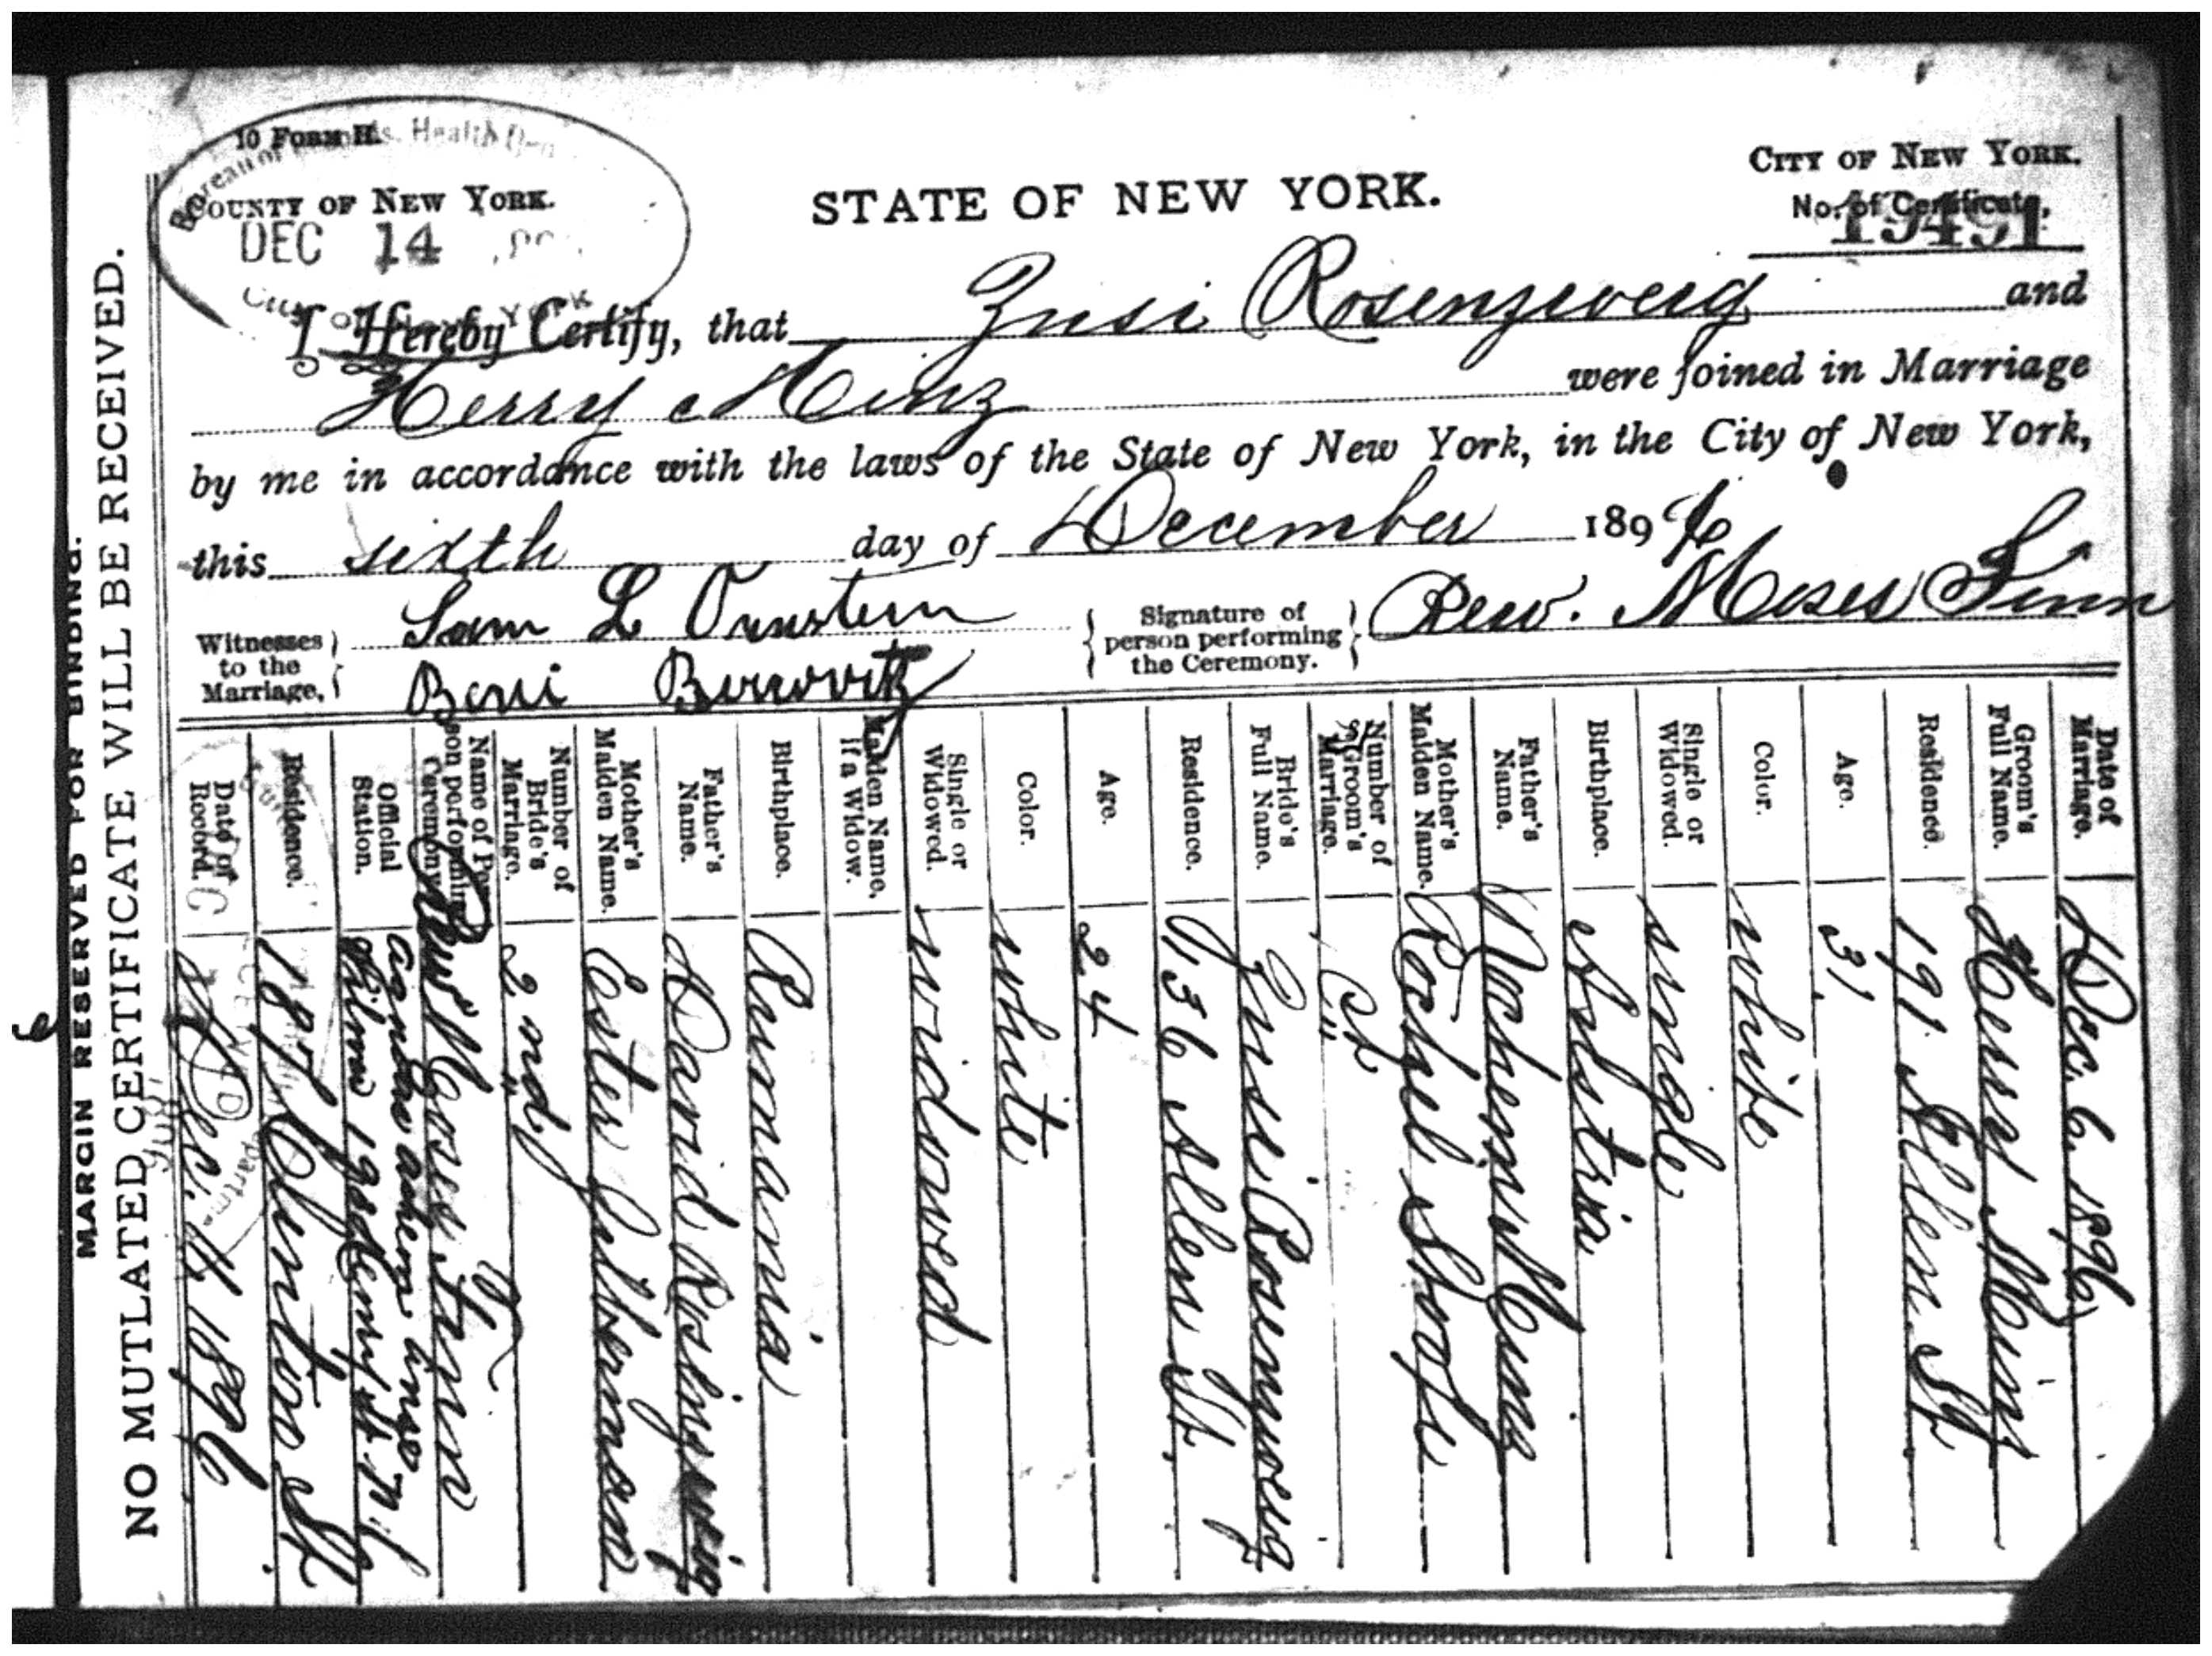 10 FORM H.
Bureau of Health
COUNTY OF NEW YORK.
DEC 14
STATE OF NEW YORK.
CITY OF NEW YORK.
No. of Certificate,
19491
I Hereby Certify, that Zusi Rosenzweig and
Herry Minz were joined in Marriage
by me in accordance with the laws of the State of New York, in the City of New York,
this sixth day of December 1896
Witnesses to the Marriage, Sam L Ornstein
Beni Berowitz
Signature of person performing the Ceremony. Rew. Moses Finn
Date of Marriage. Dec. 6. 1896
Groom's Full Name. Herry Minz
Residence. 191 Allen St
Age. 31
Color. white
Single or Widowed. single
Birthplace. Austria
Father's Name. Nochem
Mother's Maiden Name. Rochel
Number of Groom's Marriage.
Bride's Full Name. Zusi Rosenzweig
Residence. 136 Allen St.
Age. 24
Color. white
Single or Widowed. widowed
Maiden Name, If a Widow.
Birthplace. Rumania
Father's Name. David
Mother's Maiden Name. Ester Silberman
Number of Bride's Marriage. 2nd
Name of Person performing Ceremony. Rew. Moses Finn
Official Station.
Residence. 187 Clinton St
Date of Record. Dec. 1896
NO MUTLATED CERTIFICATE WILL BE RECEIVED.
MARGIN RESERVED FOR BINDING.